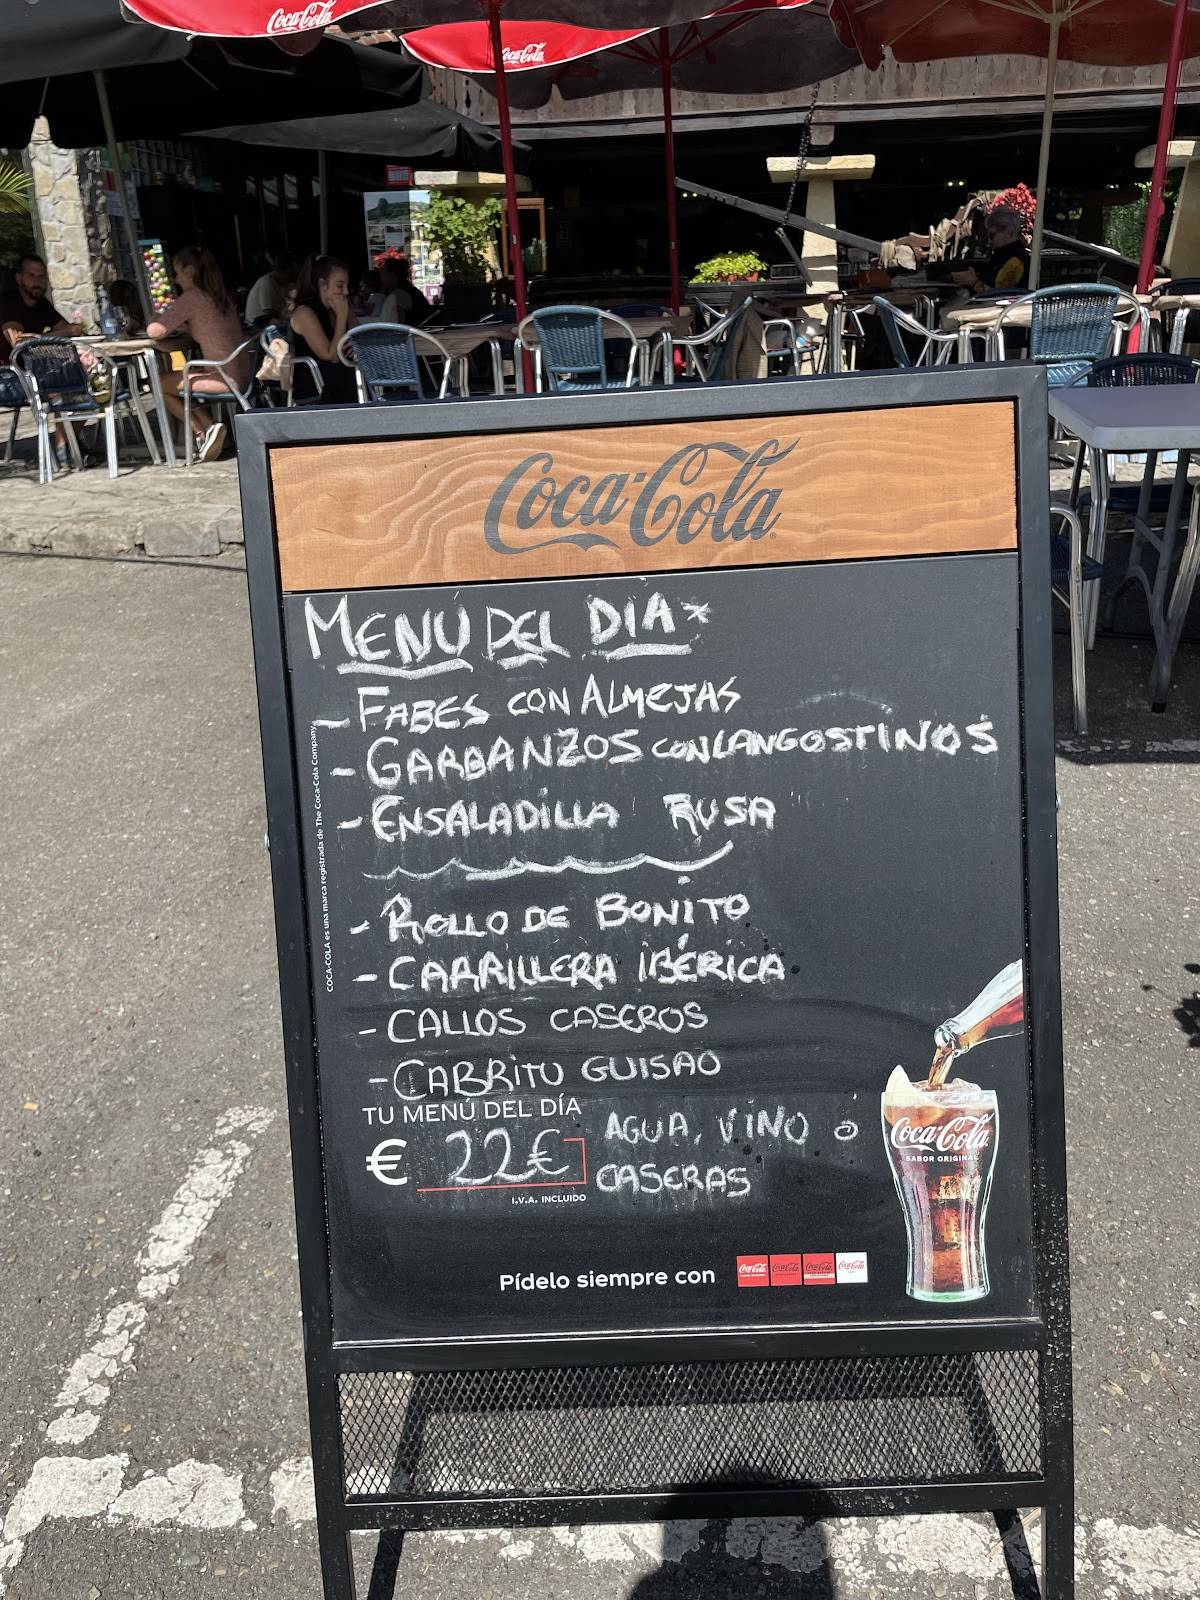 Coca-Cola
Coca-Cola
Coca-Cola
MENÚ DEL DIA*
- FABES CON ALMEJAS
- GARBANZOS CON LANGOSTINOS
- ENSALADILLA RUSA
- ROLLO DE BONITO
- CARRILLERA IBÉRICA
- CALLOS CASEROS
- CABRITU GUISAO
TU MENÚ DEL DÍA
€ 22€
I.V.A. INCLUIDO
AGUA, VINO o
CASERAS
Coca-Cola
SABOR ORIGINAL
Pídelo siempre con
Coca-Cola Coca-Cola Coca-Cola Coca-Cola
COCA-COLA es una marca registrada de The Coca-Cola Company